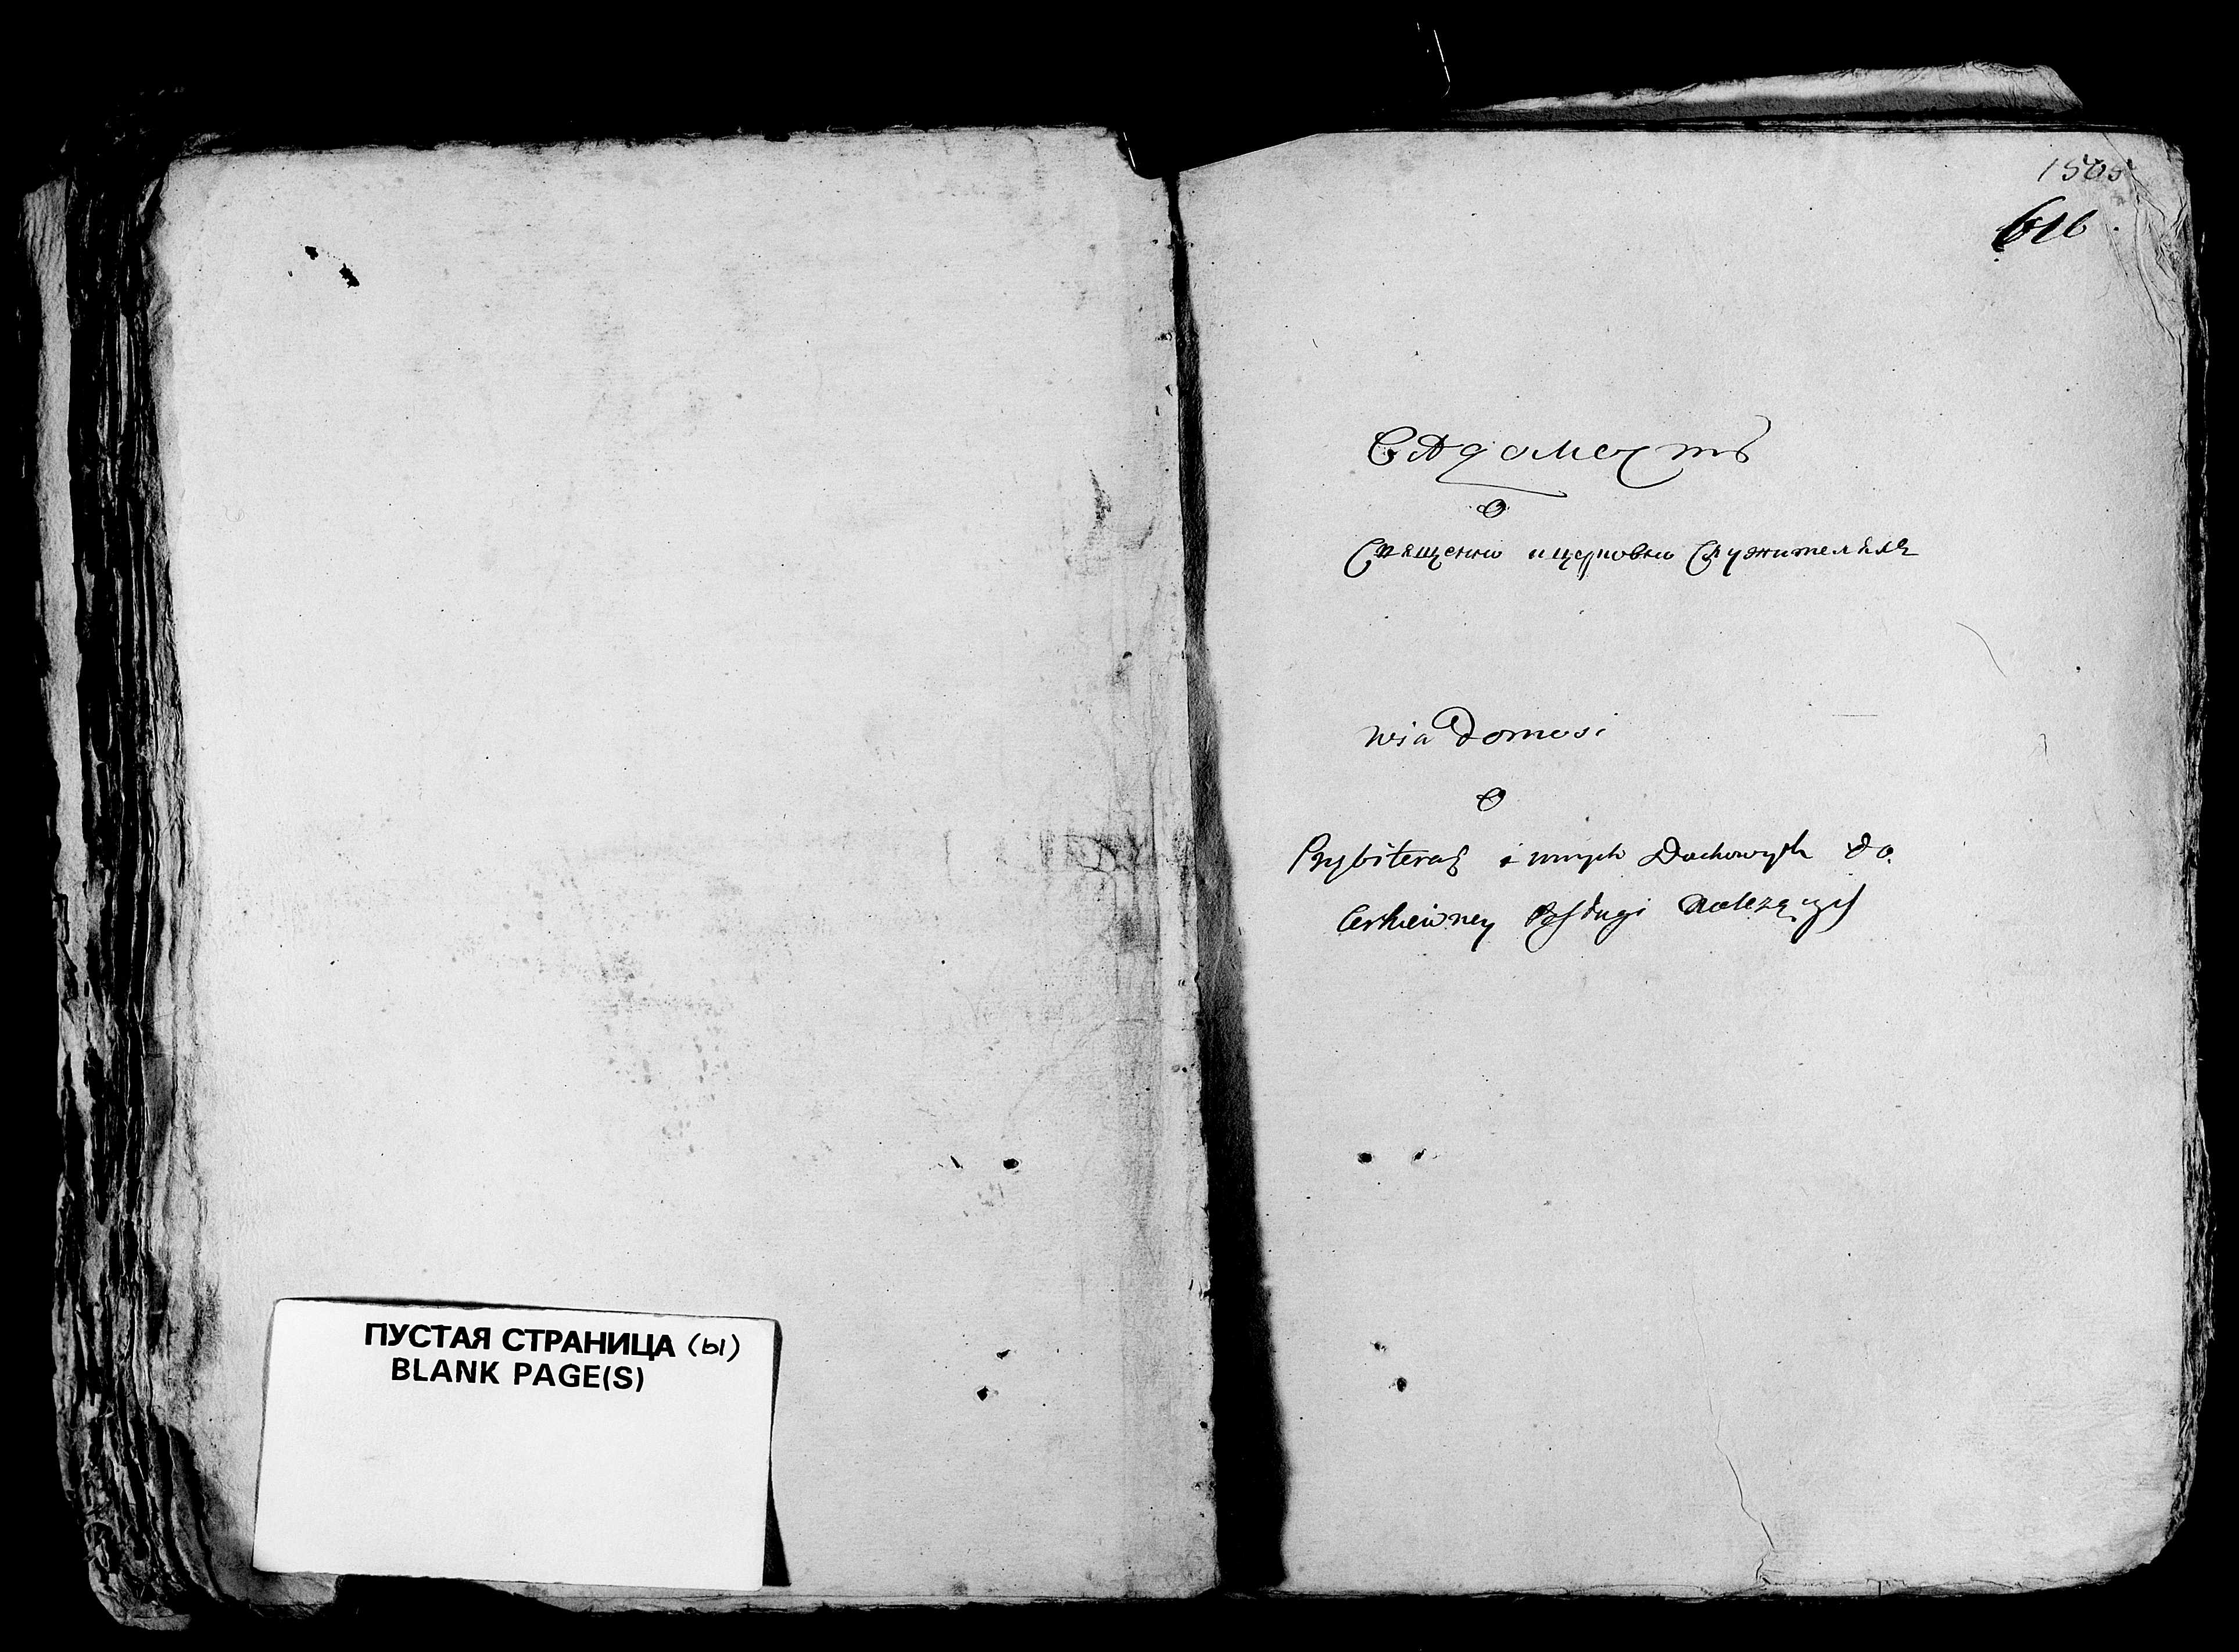 ПУСТАЯ СТРАНИЦА (ы)
BLANK PAGE(S)
1505
616.
Вѣдомость
О
Священно и церковно Служителяхъ
wiadomosi
O
Prezbiterach i innych Duchownych do
Cerkiewney Posługi należących